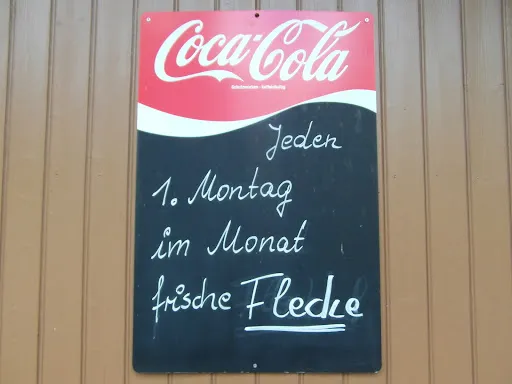 Coca-Cola
Jeden
1. Montag
im Monat
frische Flecke